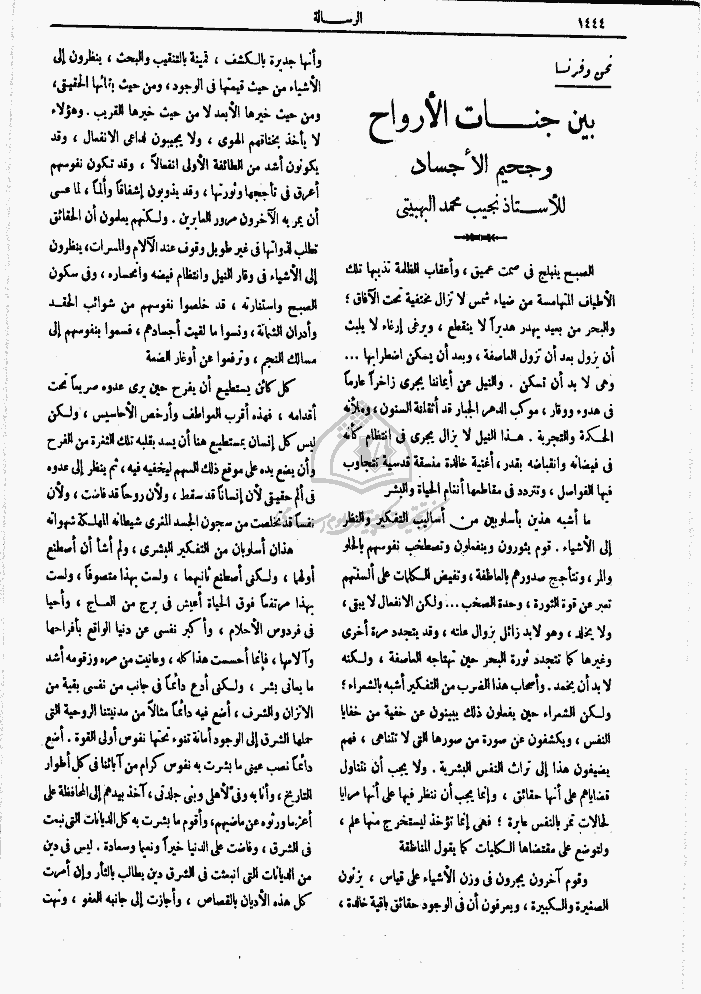 ١٤٤٤
الرسالة
نحن وفرنسا
بين جنات الأرواح
وجحيم الأجساد
للأستاذ نجيب محمد البهبيتي
الصبح ينبلج في صمت عميق ، وأعقاب الظلمة تذيبها تلك
الأطياف المتهامسة من ضياء شمس لا تزال مختفية تحت الآفاق ؛
والبحر من بعيد يهدر هديراً لا ينقطع ، ويرغي إرغاء لا يلبث
أن يزول بعد أن تزول العاصفة ، وبعد أن يسكن اضطرابها ...
وهي لا بد أن تسكن . والنيل عن أيماننا يجري زاخراً عارماً
في هدوء ووقار ، موكب الدهر الجبار قد أثقلته السنون ، وملأته
الحكمة والتجربة . هذا النيل لا يزال يجري في انتظام كأنه
في فيضانه وانقباضه بقدر ، أغنية خالدة منسقة قدسية تتجاوب
فيها الفواصل ، وتتردد في مقاطعها أنتام الحياة والبشر
ما أشبه هذين بأسلوبين من أساليب التفكير والنظر
إلى الأشياء . قوم يثورون وينفعلون وتصطخب نفوسهم بالحلو
والمر ، وتتأجج صدورهم بالعاطفة ، وتفيض الكلمات على ألسنتهم
تعبر عن قوة الثورة ، وحدة الصخب ... ولكن الانفعال لا يبقى ،
ولا يخلد ، وهو لابد زائل بزوال علته ، وقد يتجدد مرة أخرى
وغيرها كما تتجدد ثورة البحر حين تهتاجه العاصفة ، ولكنه
لا بد أن يخمد . وأصحاب هذا الضرب من التفكير أشبه بالشعراء ؛
ولكن الشعراء حين يفعلون ذلك يبينون عن خفية من خفايا
النفس ، ويكشفون عن صورة من صورها التي لا تتناهى ، فهم
يضيفون هذا إلى تراث النفس البشرية . ولا يجب أن تتناول
قضاياهم على أنها حقائق ، وإنما يجب أن ننظر فيها على أنها مرايا
لحالات تمر بالنفس عابرة ؛ فهي إنما تؤخذ ليستخرج منها علم ،
ولتوضع على مقتضاها الكليات كما يقول المناطقة
وقوم آخرون يجرون في وزن الأشياء على قياس ، يزنون
الصغيرة والكبيرة ، ويعرفون أن في الوجود حقائق باقية خالدة ،
وأنها جديرة بالكشف ، قمينة بالتنقيب والبحث ، ينظرون إلى
الأشياء من حيث قيمتها في الوجود ، ومن حيث بقائها الحقيقي ،
ومن حيث خيرها الأبعد لا من حيث خيرها القريب . وهؤلاء
لا يأخذ بخناقهم الهوى ، ولا يجيبون لداعي الانفعال ، وقد
يكونون أشد من الطائفة الأولى انفعالاً ، وقد تكون نفوسهم
أعرق في تأججها وثورتها ، وقد يذوبون إشفاقاً وألماً ، لما عسى
أن يمر به الآخرون مرور العابرين . ولكنهم يعلمون أن الحقائق
تطلب لذواتها في غير طويل وقوف عند الآلام والمسرات ، ينظرون
إلى الأشياء في وقار النيل وانتظام فيضه وانحساره ، وفي سكون
الصبح واستنارته ، قد خلصوا نفوسهم من شوائب الحقد
وأدران الشماتة ، ونسوا ما لقيت أجسادهم ، فسموا بنفوسهم إلى
مسالك النجم ، وترفعوا عن أوغار الضعة
كل كائن يستطيع أن يفرح حين يرى عدوه صريعاً تحت
أقدامه ، فهذه أقرب العواطف وأرخص الأحاسيس ، ولكن
ليس كل إنسان بمستطيع هنا أن يسد بقلبه تلك الثغرة من الفرح
وأن يضع يده على موقع ذلك السهم ليخفيه فيه ، ثم ينظر إلى عدوه
في ألم حقيقي لأن إنساناً قد سقط ، ولأن روحاً قد فاضت ، ولأن
نفساً قد تخلصت من سجون الجسد المثرى شيطانه المهلكة شهواته
هذان أسلوبان من التفكير البشري ، ولم أشأ أن أصطنع
أولهما ، ولكني أصطنع ثانيهما ، ولست بهذا متصوفاً ، ولست
بهذا مرتفعاً فوق الحياة أعيش في برج من العاج ، وأحيا
في فردوس الأحلام ، وأكبر نفسي عن دنيا الواقع بأفراحها
وآلامها ، فإنما أحسست هذا كله ، وعانيت من مره وزقومه أشد
ما يعاني بشر ، ولكني أدع دائماً في جانب من نفسي بقية من
الاتزان والشرف ، أضع فيه دائماً مثالاً من مدنيتنا الروحية التي
حملها الشرق إلى الوجود أمانة تنوء تحتها نفوس أولى القوة . أضع
دائماً نصب عيني ما بشرت به نفوس كرام من آبائنا في كل أطوار
التاريخ ، وأنا به وفيّ لأهلي وبني جلدتي ، آخذ بيدهم إلى المحافظة على
أعز ما ورثوه عن ماضيهم ، وأقوم ما بشرت به كل الديانات التي نبعت
في الشرق ، وفاضت على الدنيا خيراً ونعيما وسعادة . ليس في دين
من الديانات التي انبعثت في الشرق دين يطالب بالثأر وإن أمرت
كل هذه الأديان بالقصاص ، وأجازت إلى جانبه العفو ، ونهت